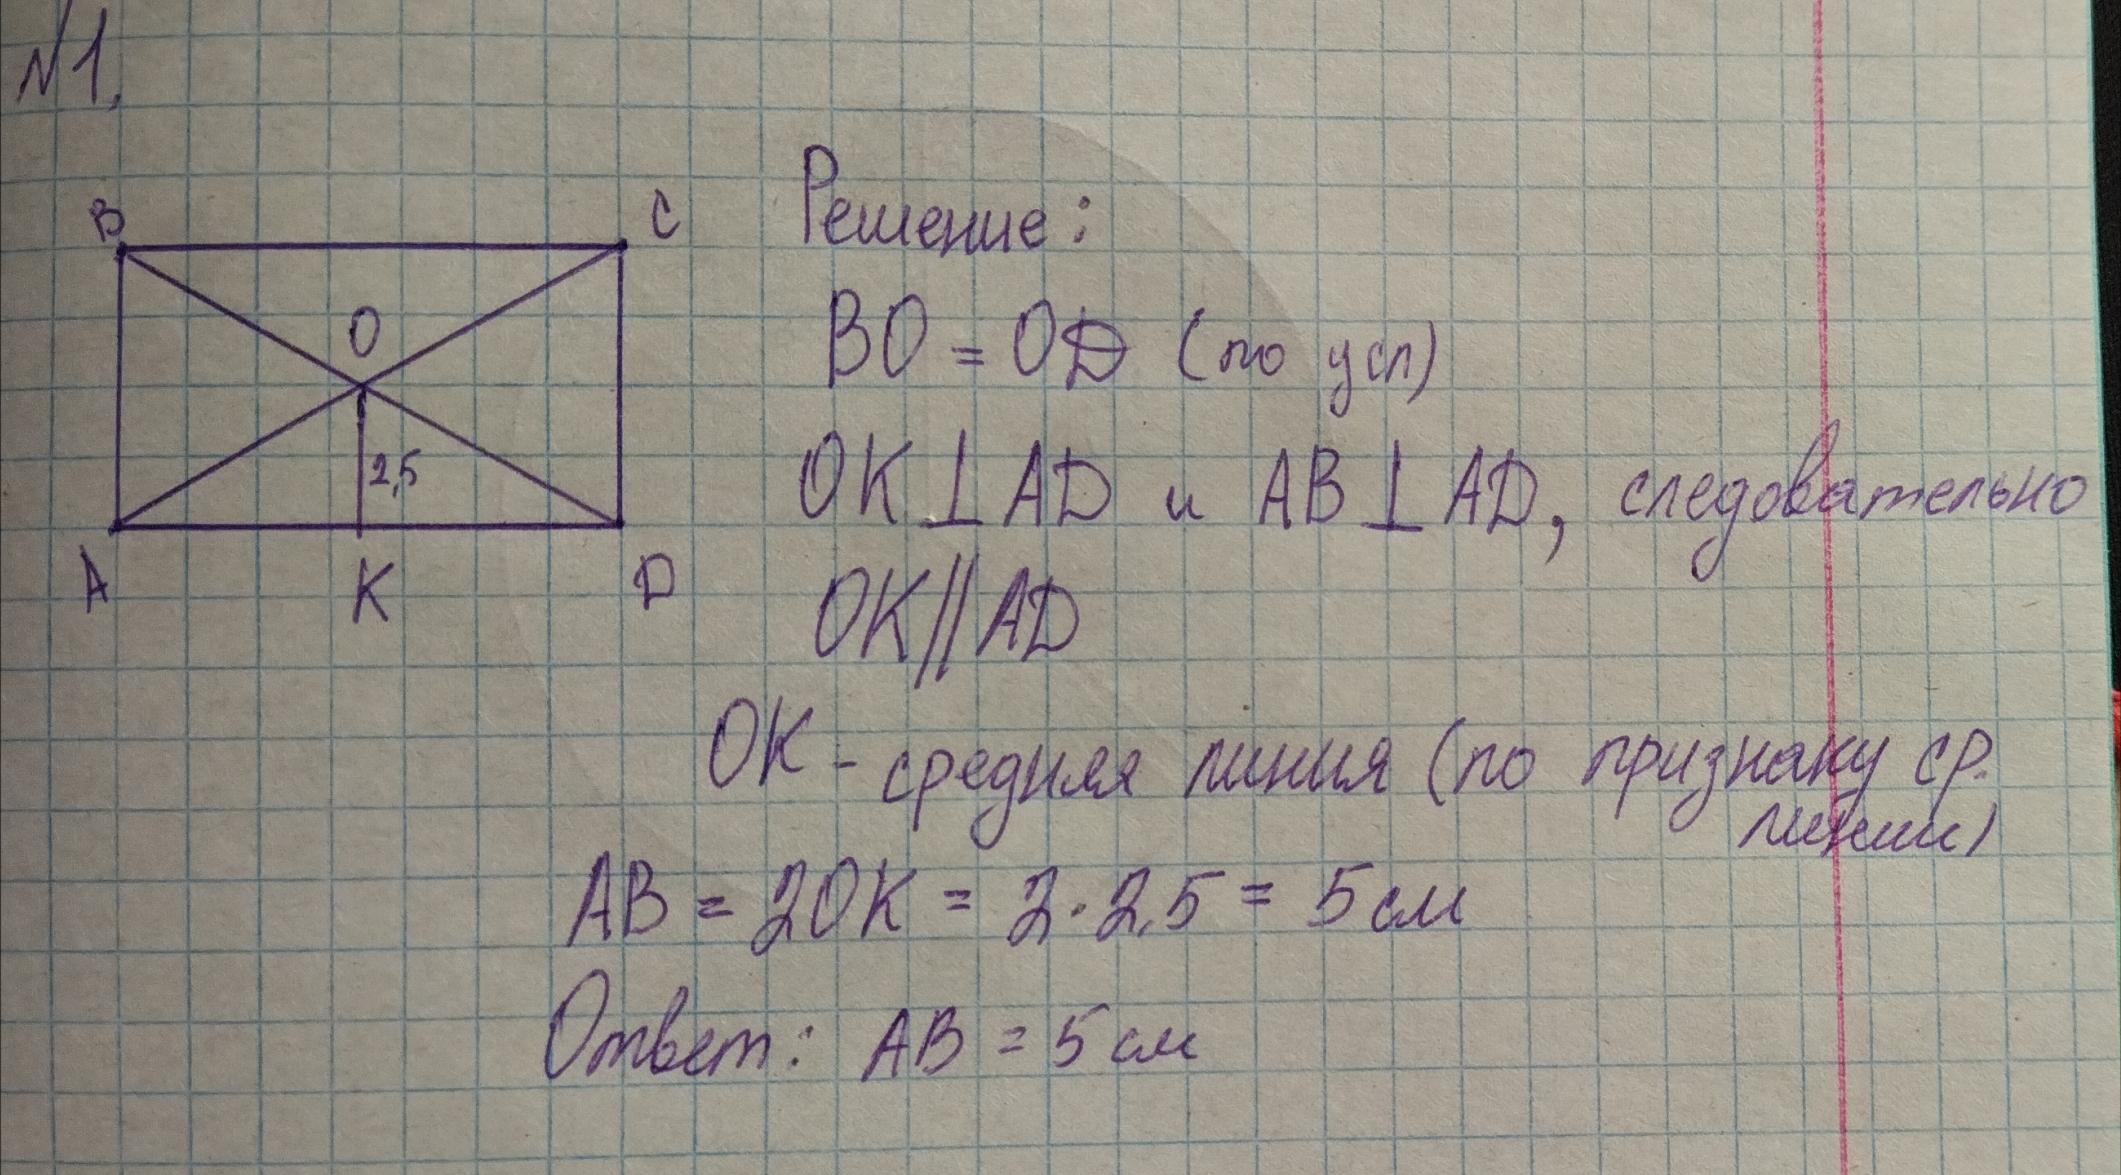 №1.
B
C
O
2,5
A
K
D
Решение:
BO = OD (по усл)
OK⊥AD и AB⊥AD, следовательно
OK||AD
OK - средняя линия (по признаку ср.
линии)
AB = 2OK = 2·2,5 = 5 см
Ответ: AB = 5 см